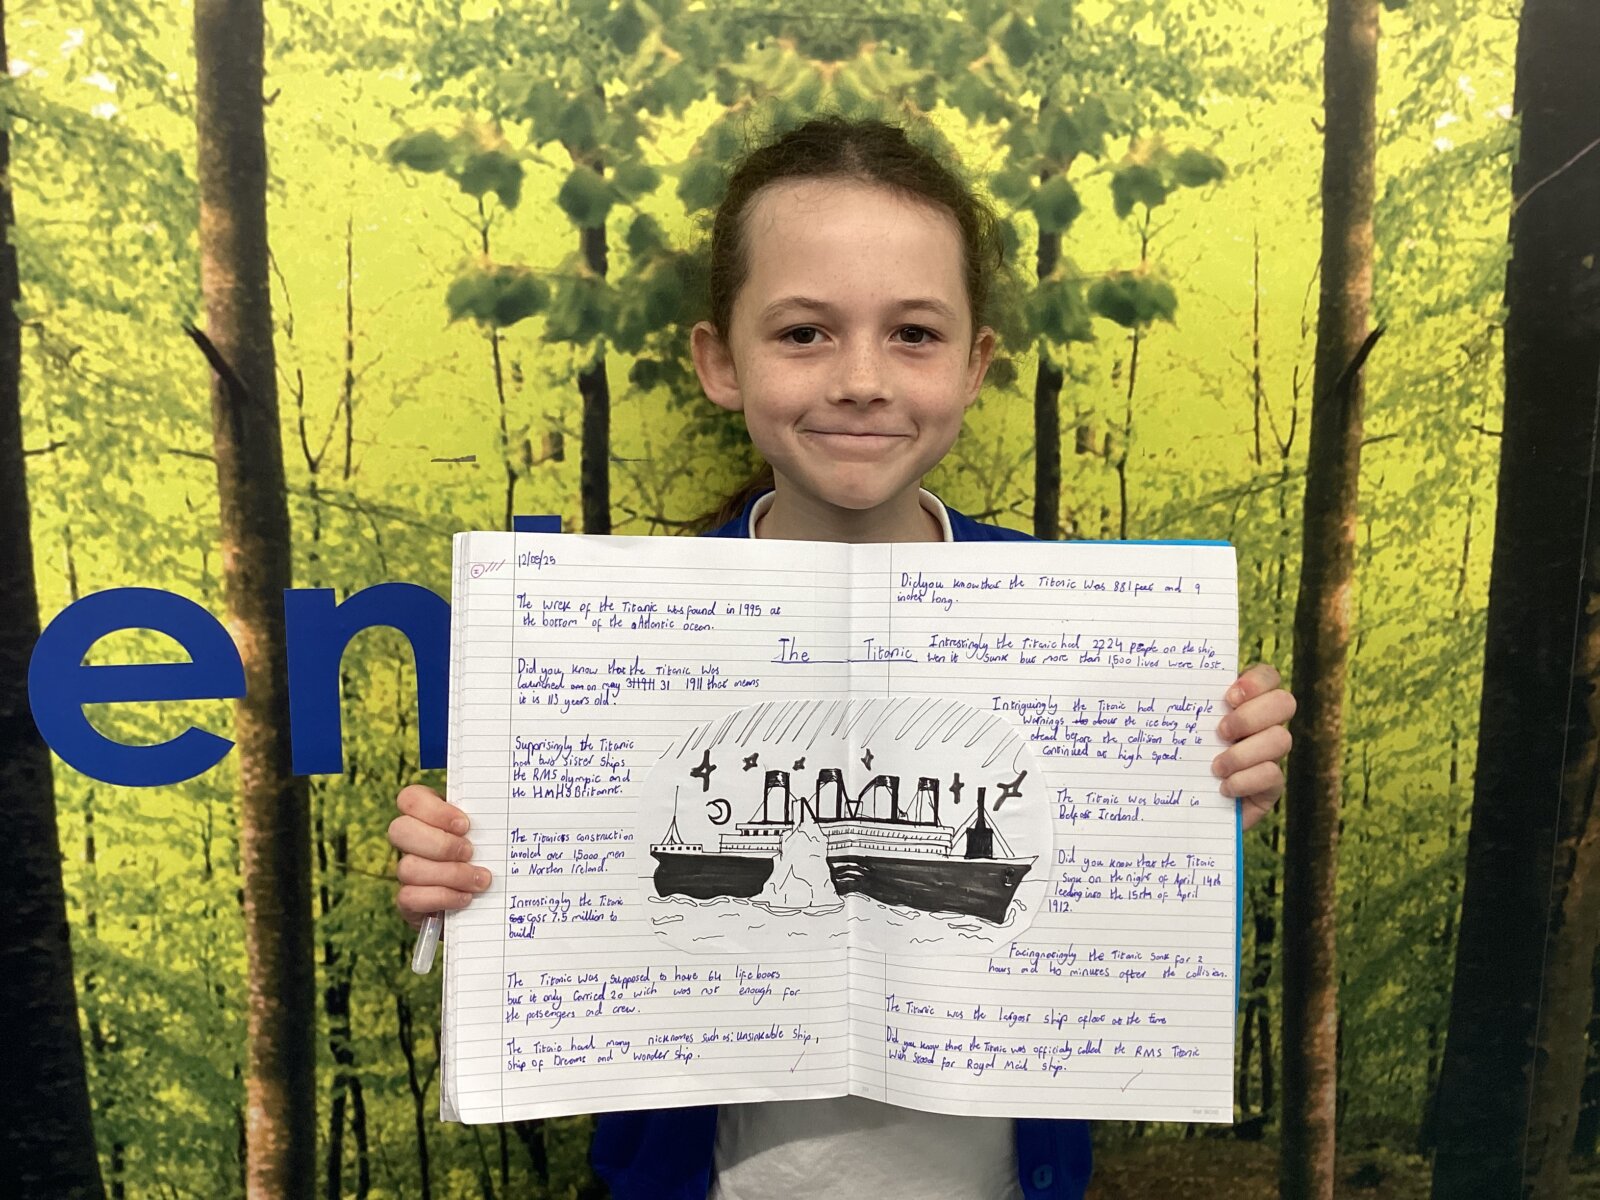 en
12/05/25
The wrek of the Titanic was found in 1995 at
the bottom of the Atlantic ocean.
The Titanic
Did you know that the Titanic was
launched on may 31 1911 that means
it is 113 years old.
Supprisingly the Titanic
had two sister ships
the RMS olympic and
the HMHS Britannt.
The Titanics construction
involed over 15000 men
in Northen Ireland.
Intrestingly the Titanic
cost 7.5 million to
build!
The Titanic was supposed to have 64 lifeboats
but it only carried 20 wich was not enough for
the passengers and crew.
The Titanic had many nicknames such as: Unsinkable ship,
Ship of Dreams and wonder ship.
Did you know that the Titanic was 881 feet and 9
inches long.
Intrestingly the Titanic had 2224 people on the ship
wen it sunk but more than 1,500 lives were lost.
Intriguingly the Titanic had multiple
warnings about the iceburg up
ahead before the collision but it
continued at high speed.
The Titanic was build in
Belfast Irenland.
Did you know that the Titanic
sunk on the night of April 14th
leeding into the 15th of April
1912.
the Titanic sank for 2
hours and 40 minutes after the collision.
The Titanic was the largest ship afloat at the time
Did you know that the Titanic was officialy called the RMS Titanic
wich stood for Royal Mail ship.